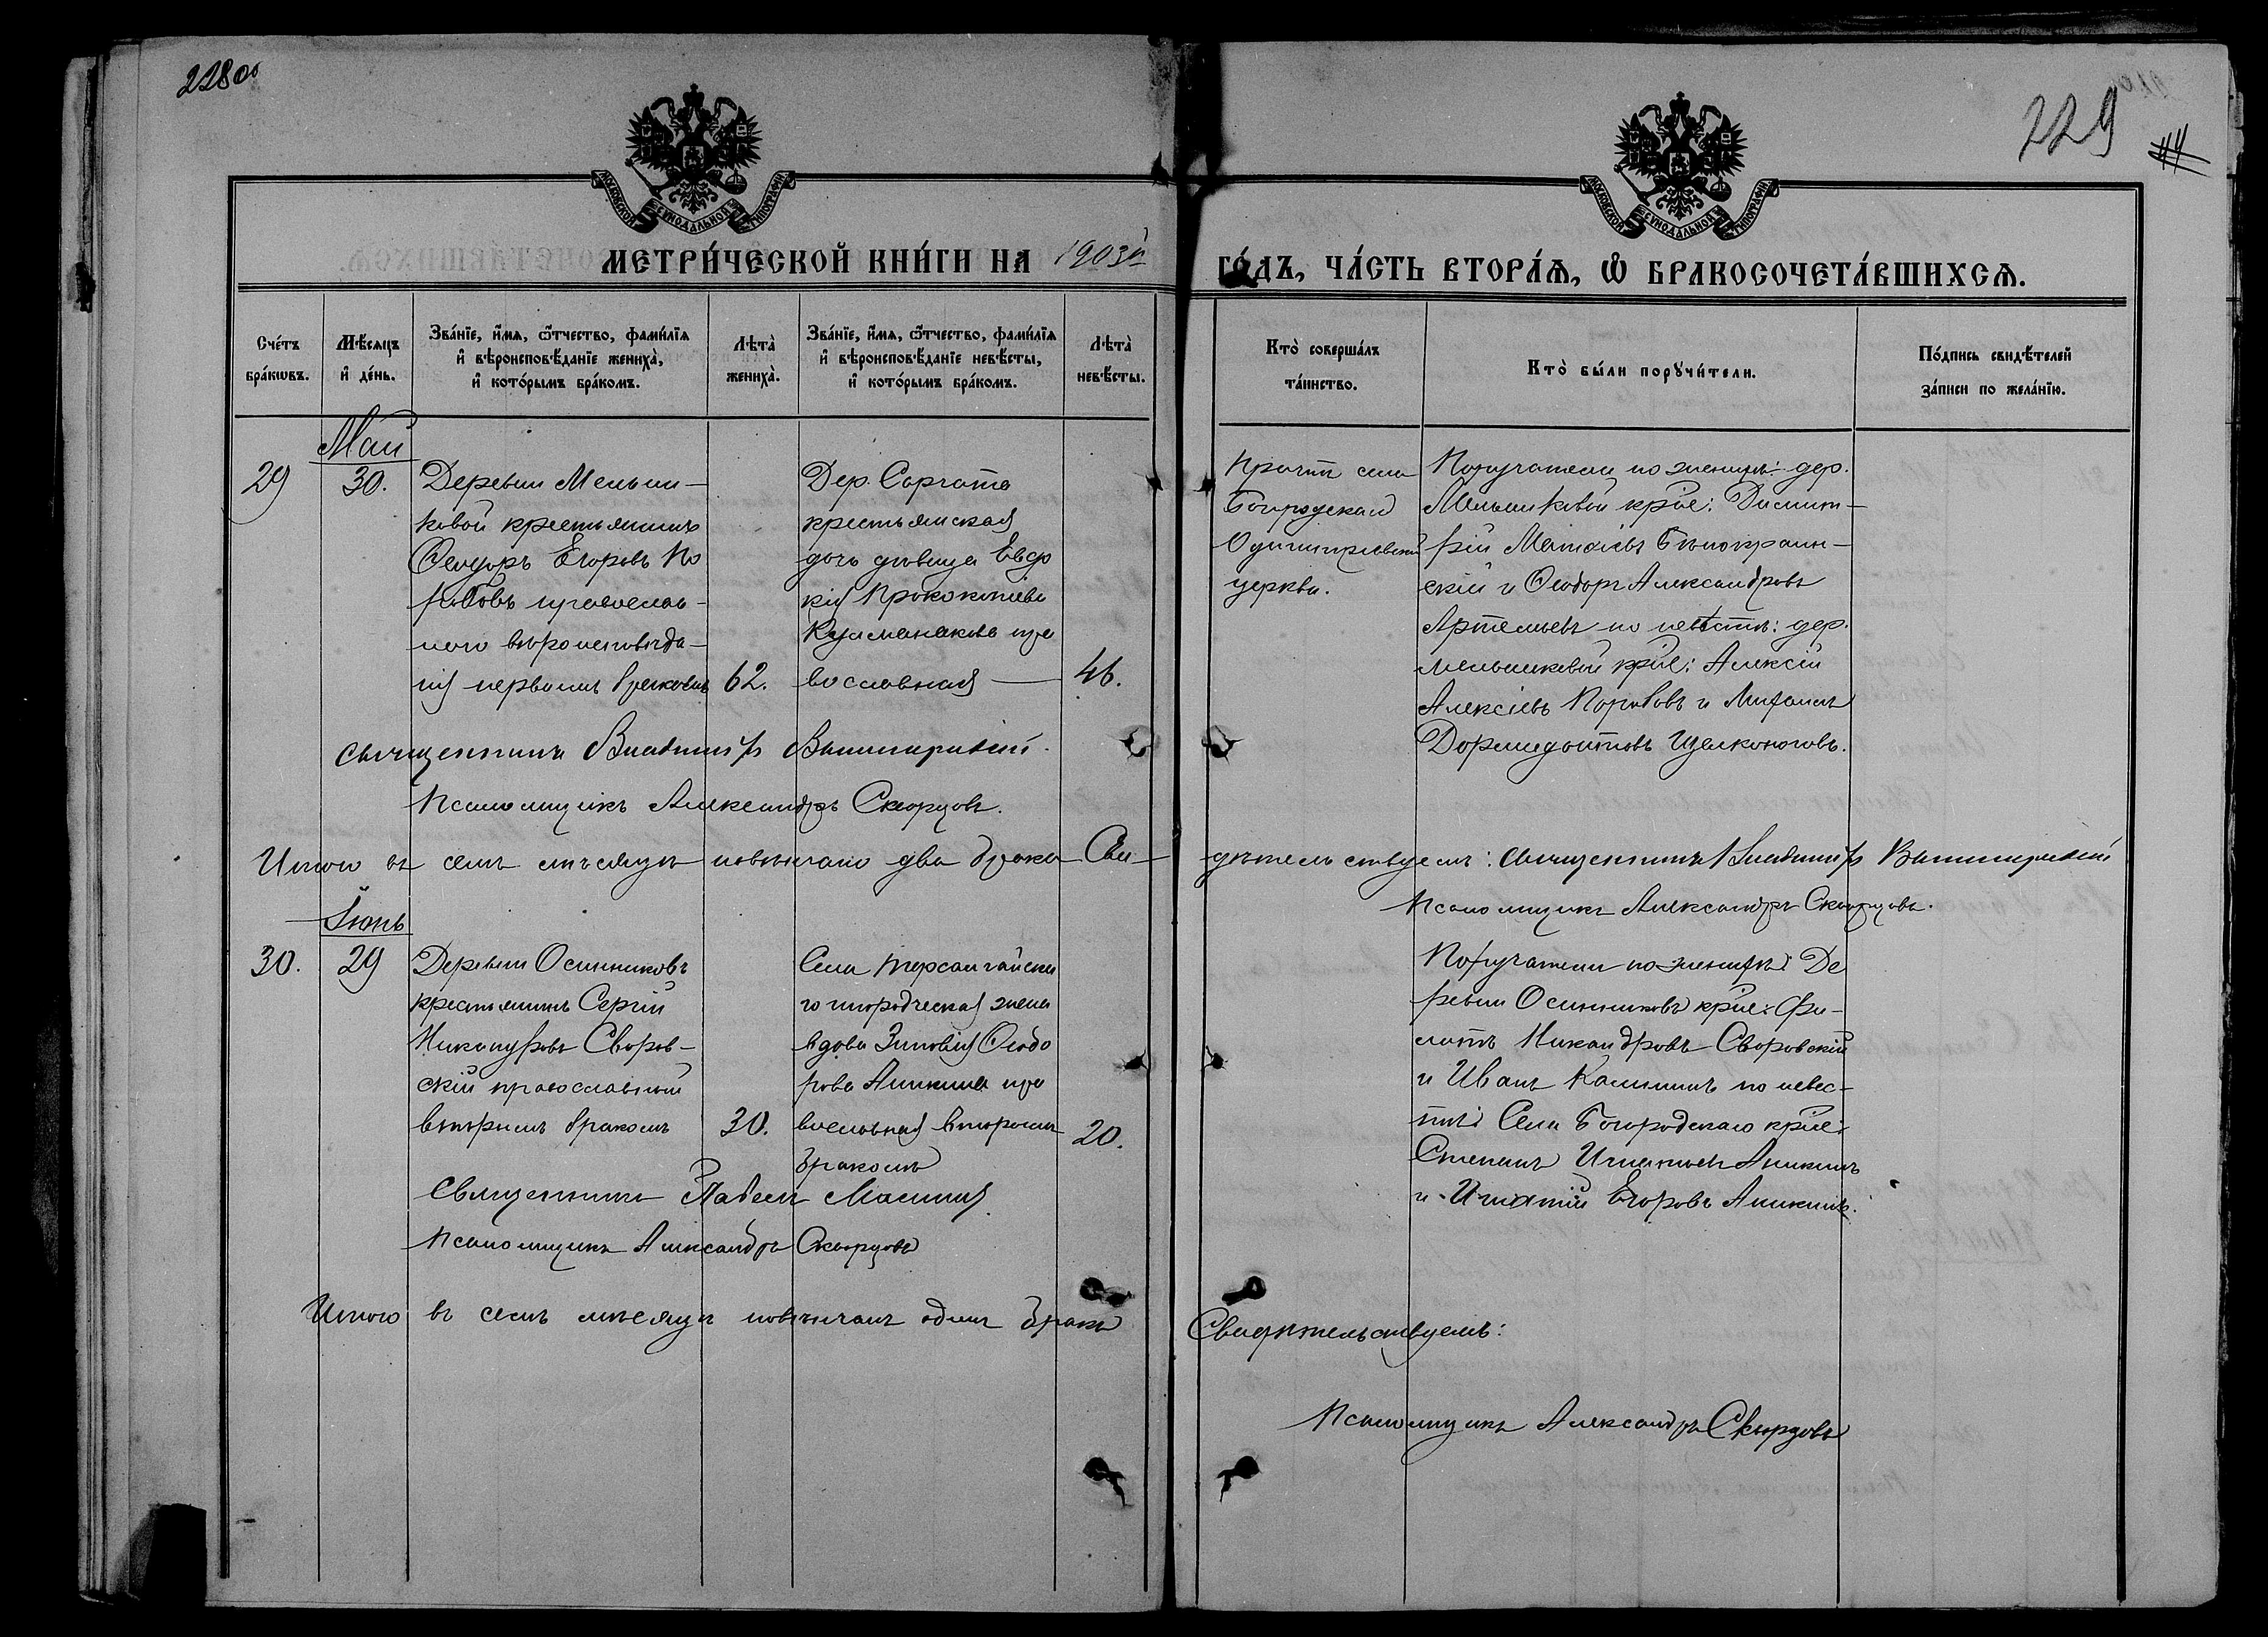 228об
229
44
МОСКОВСКОЙ СѴНОДАЛЬНОЙ ТИПОГРАФІИ
МОСКОВСКОЙ СѴНОДАЛЬНОЙ ТИПОГРАФІИ
МЕТРИ́ЧЕСКОЙ КНИ́ГИ НА 1903й
ГО́ДЪ, ЧА́СТЬ ВТОРА́Ѧ, Ѽ БРАКОСОЧЕТА́ВШИХСѦ.
Сче́тъ
бра́кѡвъ.
Мѣ́сѧцъ
и҆ де́нь.
Зва́нїе, и҆́мѧ, ѻ҆́тчество, фами́лїѧ
и҆ вѣроисповѣ́данїе жениха̀,
и҆ кото́рымъ бра́комъ.
Лѣта̀
жениха̀.
Зва́нїе, и҆́мѧ, ѻ҆́тчество, фами́лїѧ
и҆ вѣроисповѣ́данїе невѣ́сты,
и҆ кото́рымъ бра́комъ.
Лѣта̀
невѣ́сты.
Кто̀ соверша́лъ
та́инство.
Кто̀ бы́ли порꙋчи́тели.
По́дпись свидѣ́телей
за́писи по жела́нїю.
Май
29
30.
Деревни Мельни-
ковой крестьянинъ
Ѳеодоръ Егоровъ По
рововъ православ-
наго вѣроисповѣда-
нія первымъ бракомъ
62.
Дер. Саргата
крестьянская
дочь дѣвица Евдо
кія Прокопіева
православная
46.
Причтъ села
Богородскаго
Одигитріевской
церкви.
Поручатели по женихѣ: дер.
Мельниковой крне: Димит-
рій
скій и Ѳеодоръ Александровъ
Артемьевъ по невѣстѣ: дер.
мельниковой крне: Алексій
Алексіевъ Порововъ и Михаилъ
Дормидонтовъ Щелконоговъ.
Священникъ Владиміръ
Псаломщикъ Александръ Скворцовъ.
Итого въ семъ мѣсяцѣ повѣнчано два брака Сви-
дѣтельствуемъ: священникъ Владиміръ
Псаломщикъ Александръ Скворцовъ.
Іюнь
30.
29
Деревни Осинниковъ
крестьянинъ Сергій
Никандровъ Своров-
скій православный
вторымъ бракомъ
30.
Села
го инородческая жена
вдова Зиновія Ѳеодо
рова Аникина пра
вославная вторымъ
бракомъ
20.
Поручатели по женихѣ: Де
ревни Осинниковъ крне: Фи-
латъ Никандровъ Своровскій
и Иванъ Калининъ по невѣс-
тѣ: Села Богородскаго крне:
Степанъ Игнатьевъ Аникинъ
и Игнатій Егоровъ Аникинъ.
Священникъ Павелъ Малинин
Псаломщикъ Александръ Скворцовъ
Итого въ семъ мѣсяцѣ повѣнчанъ одинъ бракъ
Свидѣтельствуемъ:
Псаломщикъ Александръ Скворцовъ